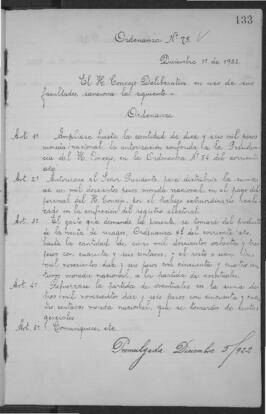 133
Ordenanza Nº 78
Diciembre 1º de 1922.
El H. Concejo Deliberativo, en uso de sus
facultades, sanciona la siguiente –
Ordenanza
Art. 1º Ampliase hasta la cantidad de diez y seis mil pesos
moneda nacional, la autorización conferida a la Presiden
cia del H. Concejo, en la Ordenanza Nº 54 del corriente
año.
Art. 2º Autorízase al Señor Presidente, para distribuir la suma
de un mil doscientos pesos moneda nacional, en el pago del
personal del H. Concejo, por el trabajo extraordinario reali
zado en la confección del registro electoral.
Art. 3º El gasto que demande la presente, se tomará del producto
de la venta de rezagos, Ordenanza 48 del corriente año,
hasta la cantidad de mil doscientos ochenta y tres
pesos con cuarenta y seis centavos, y el resto o sean
mil novecientos diez y seis pesos con cincuenta y cuatro cen
tavos moneda nacional, a la partida de eventuales.
Art. 4º Refuérzase la partida de eventuales en la suma de
mil novecientos diez y seis pesos con cincuenta y cua
tro centavos moneda nacional, que se tomarán de rentas
generales.
Art. 5º Comuníquese, etc.
Promulgada Diciembre 5/922